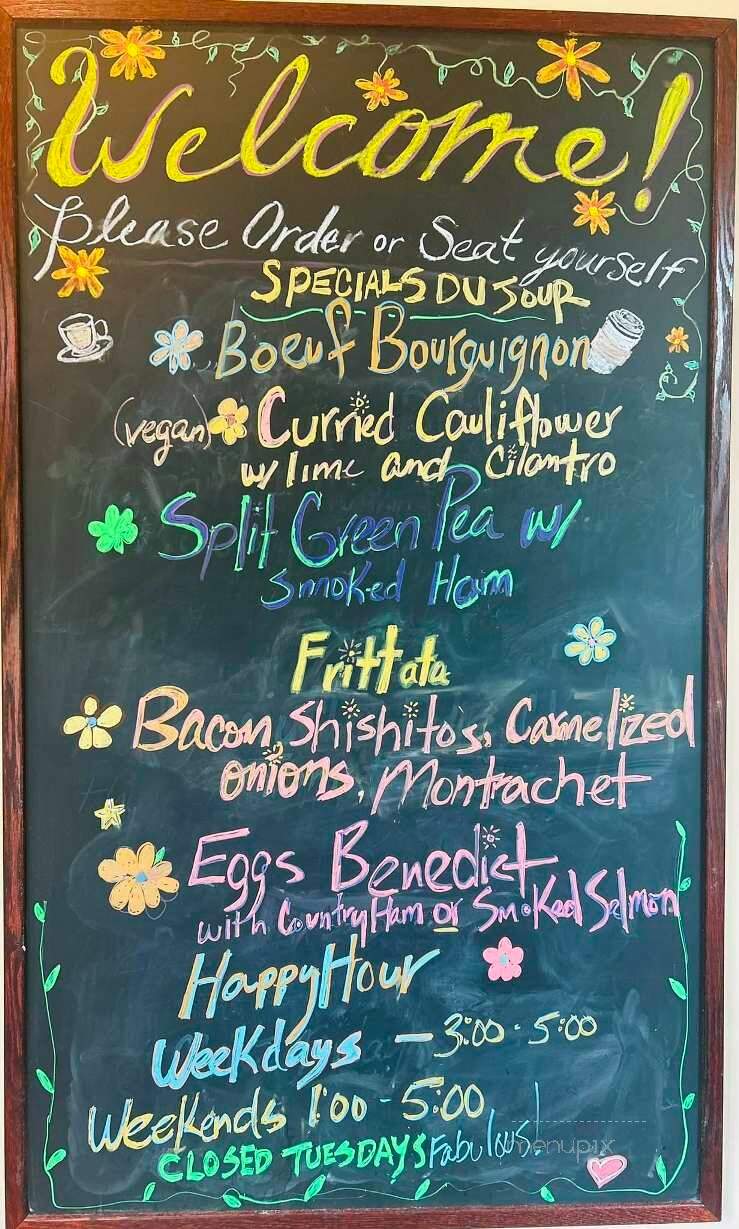 Welcome!
Please Order or Seat yourself
SPECIALS DU JOUR
Boeuf Bourguignon
(vegan) Curried Cauliflower
w/ lime and Cilantro
Split Green Pea w/
Smoked Ham
Frittata
Bacon, Shishitos, Carmelized
onions, Montrachet
Eggs Benedict
with Country Ham or Smoked Salmon
Happy Hour
Weekdays - 3:00 - 5:00
Weekends 1:00 - 5:00
CLOSED TUESDAYS Fabulous!
menupix